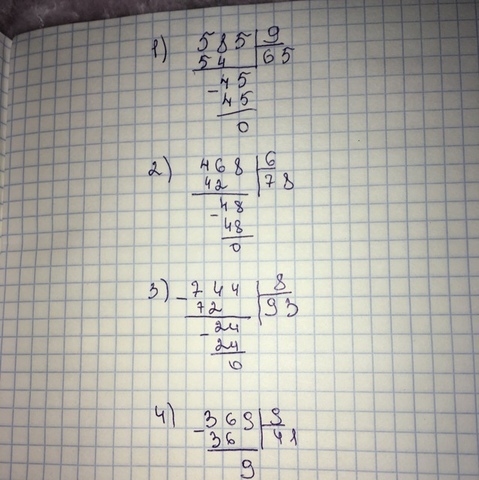 1) 585 | 9
54 | 65
-45
45
0
2) 468 | 6
42 | 78
-48
48
0
3) -744 | 8
72 | 93
-24
24
0
4) -369 | 9
36 | 41
9